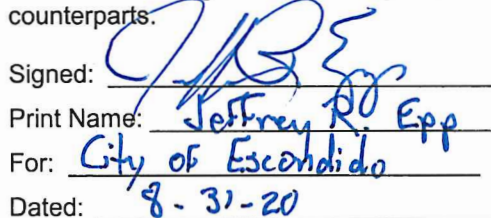 counterparts.
Signed:
Print Name: Jeffrey R. Epp
For: City of Escondido
Dated: 8-31-20